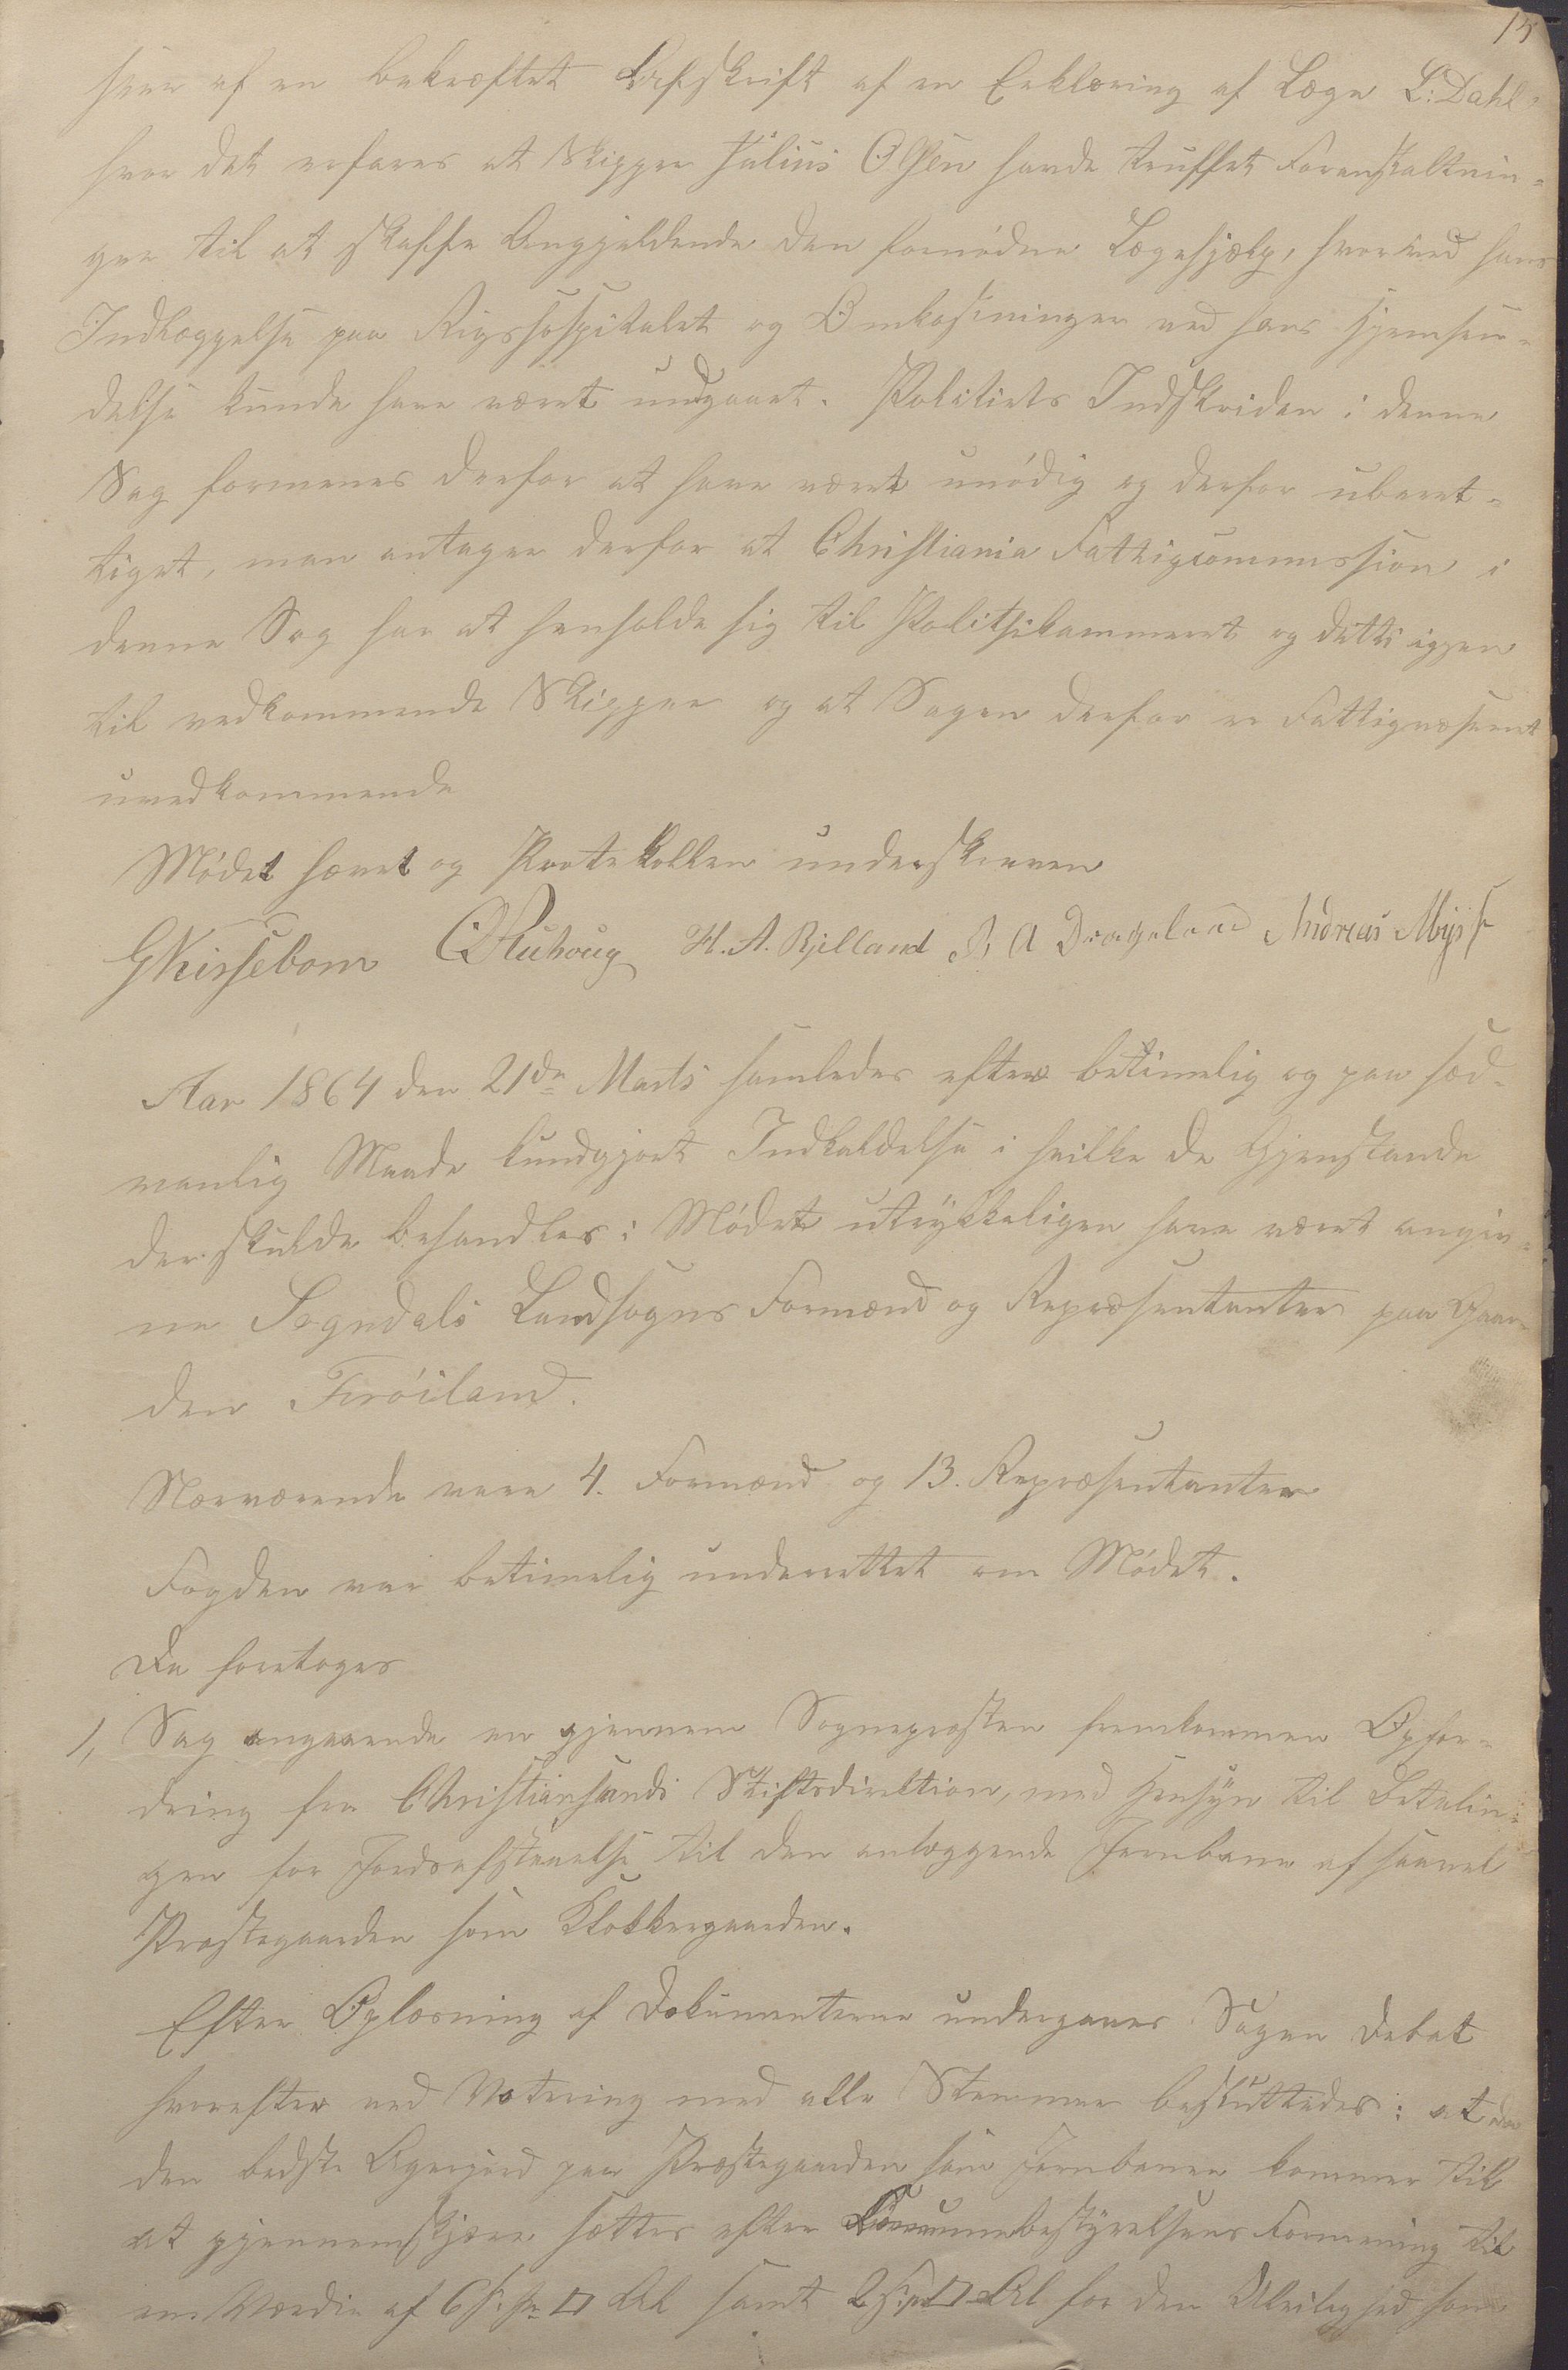 15
hver af en bekræftet Afskrift af en Erklæring af Læge L: Dahl,
hvor det erfares at Skipper Julius Olsen havde truffet Foranstaltnin-
ger til at skaffe Angjeldende den fornødne Lægehjælp, hvorved hans
Indlæggelse paa Rigshospitalet og Omkostninger ved hans Hjemsen-
delse kunde have været undgaaet. Politiets Indskriden i denne
Sag formenes derfor at have været unødig og derfor uberet-
tiget, man antager derfor at Christiania Fattigcommission i
denne Sag har at henholde sig til Politikammeret og dette igjen
til vedkommende Skipper og at Sagen derfor er Fattigvæsenet
uvedkommende
Mødet hævet og Protokollen underskreven
G Kirsebom H. A. Bjelland A Drageland Andreas
Aar 1864 den 21de Marts samledes efter betimelig og paa sæd-
vanlig Maade kundgjort Indkaldelse i hvilke de Gjenstande
der skulde behandles i Mødet utrykkeligen have været angiv-
ne Sogndals Landsogns Formænd og Repræsentanter paa Gaar-
den Frøiland.
Nærværende vare 4. Formænd og 13. Repræsentanter
Fogden var betimelig underrettet om Mødet.
Da foretoges
1, Sag angaaende en gjennem Sognepræsten fremkommen Opfor-
dring fra Christiansands Stiftsdirektion, med Hensyn til Betalin-
gen for Jordsafstaaelse til den anlæggende Jernbane af saavel
Præstegaarden som Klokkergaarden.
Efter Oplæsning af Dokumenterne undergaves Sagen Debat
hvorefter ved Votering med alle Stemmer besluttedes: at
den bedste Agerjord paa Præstegaarden som Jernbanen kommer til
at gjennemskjære sættes efter Communebestyrelsens Formening til
en Værdie af 6 s. pr □ Al samt 2 s. pr □ Al for den Uleilighed som